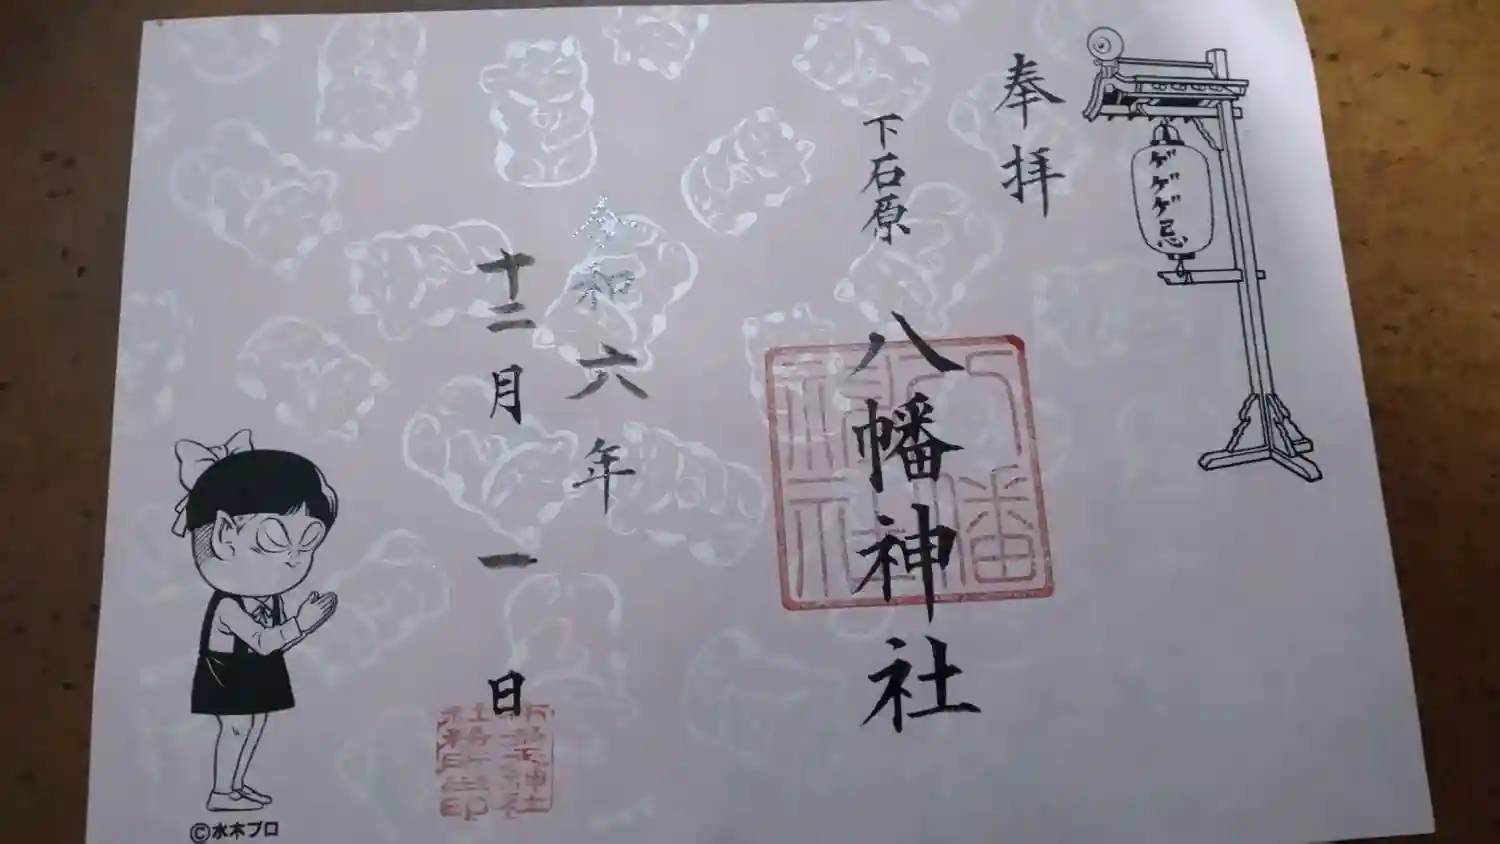 ゲゲゲ忌
奉拝
下石原
八幡神社
令和六年
十二月一日
©水木プロ